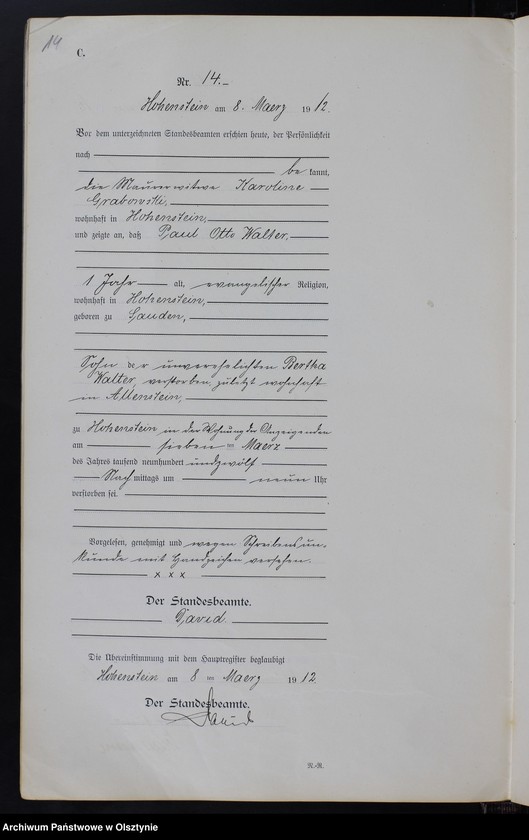 14
C.
Nr. 14.-
Hohenstein am 8. Maerz 1912.
Vor dem unterzeichneten Standesbeamten erschien heute, der Persönlichkeit
nach
bekannt,
die Maurerwitwe Karoline
Grabowski,
wohnhaft in Hohenstein,
und zeigte an, daß Paul Otto Walter,
1 Jahr alt, evangelischer Religion,
wohnhaft in Hohenstein,
geboren zu Ganden,
Sohn der unverehelichten Bertha
Walter, verstorben, zuletzt wohnhaft
in Allenstein,
zu Hohenstein in der Wohnung der Anzeigenden
am sieben ten Maerz
des Jahres tausend neunhundert und zwölf
Nachmittags um neun Uhr
verstorben sei.
Vorgelesen, genehmigt und wegen Schreibensun-
kunde mit Handzeichen versehen.
x x x
Der Standesbeamte.
David
Die Übereinstimmung mit dem Hauptregister beglaubigt
Hohenstein am 8 ten Maerz 1912
Der Standesbeamte.
David
N.-R.
Archiwum Państwowe w Olsztynie